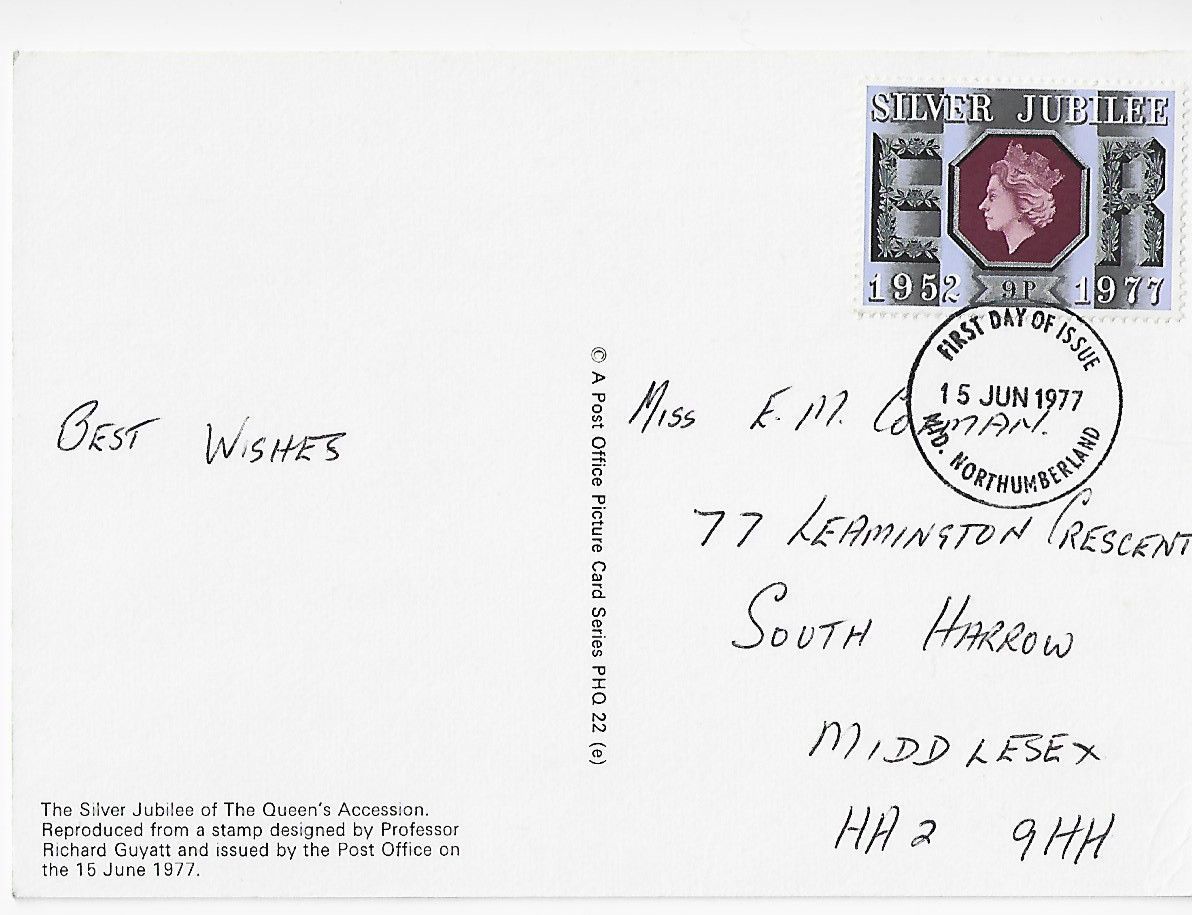 SILVER JUBILEE
E R
1952 9P 1977
FIRST DAY OF ISSUE
15 JUN 1977
MID. NORTHUMBERLAND
BEST WISHES
© A Post Office Picture Card Series PHQ 22 (e)
MISS E. M.
77 LEAMINGTON CRESCENT
SOUTH HARROW
MIDDLESEX
HA2 9HH
The Silver Jubilee of The Queen's Accession.
Reproduced from a stamp designed by Professor
Richard Guyatt and issued by the Post Office on
the 15 June 1977.